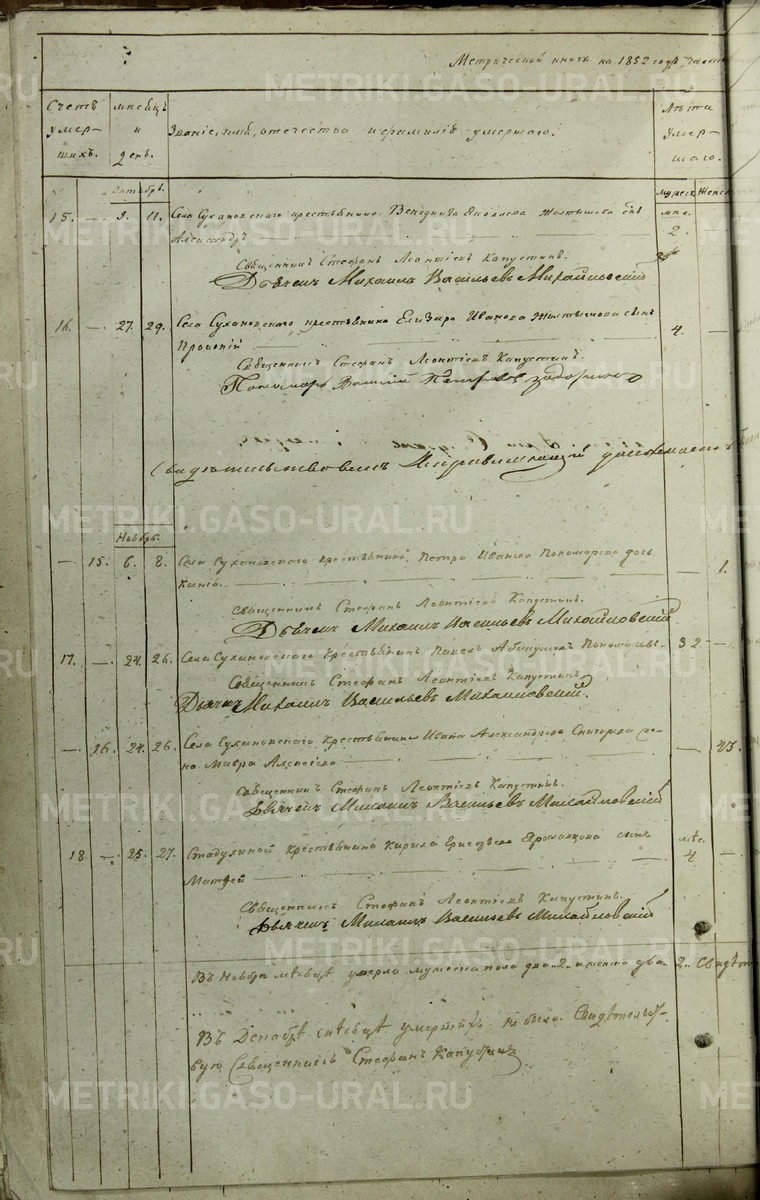 Метрической книги на 1852 годъ, части
Счетъ умер-шихъ.
Мѣсяцъ и день.
Званіе, имя, отечество и фамилія умершаго.
Лѣта умер-шаго.
Октябрь.
Мужеск. Женск.
15. — 9. 11. Села Сухановскаго крестьянина Венедикта Яковлева Жолтышева сынъ мѣс. 2.
Александръ —
Священникъ Стефанъ Леонтіевъ Капустинъ.
Дьячекъ Михаилъ Васильевъ Михайловскій
16. — 27. 29. Села Сухановскаго крестьянина Елизара Иванова Жолтышова сынъ 4. —
Прокопій —
Священникъ Стефанъ Леонтіевъ Капустинъ.
Пономарь Василій Петровъ
Свидѣтельствовалъ
Ноябрь.
— 15. 6. 8. Села Сухановскаго крестьянина Петра Иванова Пономарева дочь — 1.
Священникъ Стефанъ Леонтіевъ Капустинъ.
Дьячекъ Михаилъ Васильевъ Михайловскій
17. — 24. 26. Села Сухановскаго крестьянинъ Павелъ 32 —
Священникъ Стефанъ Леонтіевъ Капустинъ.
Дьячекъ Михаилъ Васильевъ Михайловскій.
— 16. 24. 26. Села Сухановскаго крестьянина Ивана Александрова же-
на Мавра Алексѣева —
Священникъ Стефанъ Леонтіевъ Капустинъ.
Дьячекъ Михаилъ Васильевъ Михайловскій
18. — 25. 27. крестьянина Кирила сынъ мѣс. 4 —
Матфей —
Священникъ Стефанъ Леонтіевъ Капустинъ.
Дьячекъ Михаилъ Васильевъ Михайловскій
Въ Ноябрѣ мѣсяцѣ умерло мужеска пола два 2. женска два 2.. Свидѣт
Въ Декабрѣ мѣсяцѣ умершихъ не было. Свидѣтельст-
вую Священникъ Стефанъ Капустинъ
METRIKI.GASO-URAL.RU